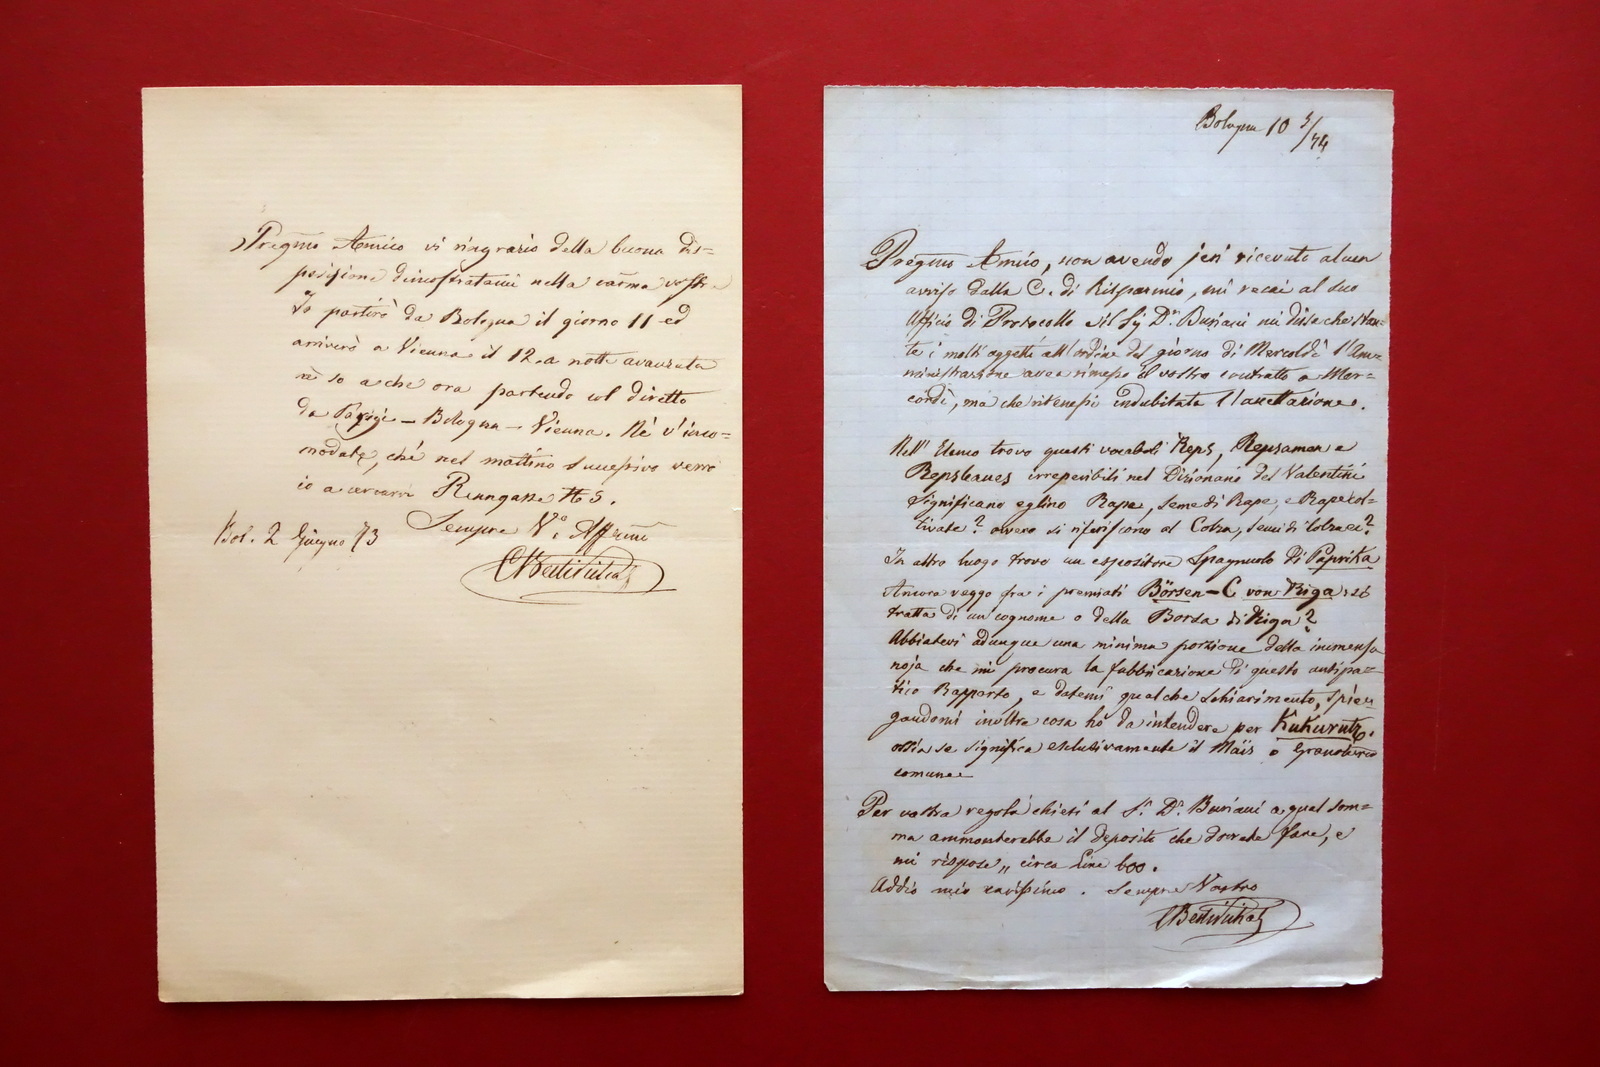 Pregmo Amico vi ringrazio della buona dis=
posizione dimostratami nella carma vostra
Io partirò da Bologna il giorno 11 ed
arriverò a Vienna il 12 a notte avanzata
nè so a che ora partendo col diretto
da Parigi – Bologna – Vienna. Nè v'inco=
modate, chè nel mattino successivo verrò
io a cercarvi N 5.
Sempre Vo. Affmo
Bol. 2 Giugno 73
CBertiPichat
Bologna 10 3/74
Pregmo Amico, non avendo jeri ricevuto alcun
avviso dalla C. di Risparmio, mi recai al suo
Ufficio di Protocollo il Sig Dr. Buriani mi disse che stan=
te i molti oggetti all'ordine del giorno di Mercoldì l'Am=
ministrazione avea rimesso il vostro contratto a Mer=
cordì, ma che ritensi indubitata l'accettazione.
Nell'Elenco trovo questi vocaboli Reps, Repsamen e
irreperibili nel Dizionario del Valentini
Significano eglino Rape, seme di Rape, e Rape col=
tivate? ovvero si riferiscono al Colza, semi di colza ec?
In altro luogo trovo un espositore Spagnuolo di Paprika
Ancora veggo fra i premiati Börsen-C von Riga: si
tratta di un cognome o della Borsa di Riga?
Abbiatevi adunque una minima porzione della immensa
noja che mi procura la fabbricazione di questo antipa=
tico Rapporto, e datemi qualche schiarimento, spie=
gandomi inoltre cosa ho da intendere per Kukurutz.
ossia se significa esclusivamente il Maïs o Granoturco
comune
Per vostra regola chiesi al Sr. Dr. Buriani a qual som=
ma ammonterebbe il deposito che dovrete fare, e
mi rispose „ circa Lire 600.
Addio mio carissimo. Sempre Vostro
CBertiPichat